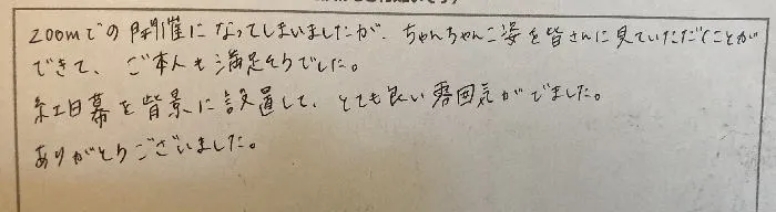 zoomでの開催になってしまいましたが、ちゃんちゃんこ姿を皆さんに見ていただくことが
できて、ご本人も満足そうでした。
紅白幕を背景に設置して、とても良い雰囲気がでました。
ありがとうございました。